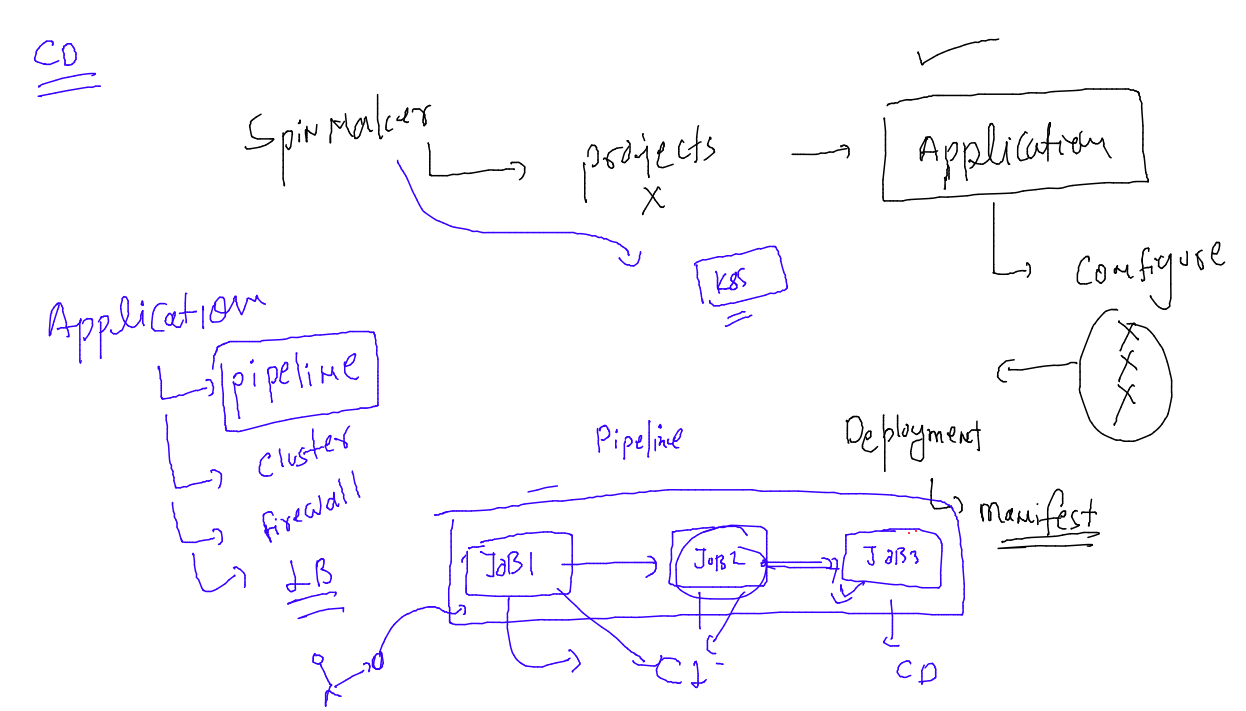 CD
Spinmaker
projects
X
Application
K8S
Configure
X
X
X
Application
pipeline
cluster
firewall
LB
Pipeline
Deployment
manifest
JOB1
JOB2
JOB3
CI
CD